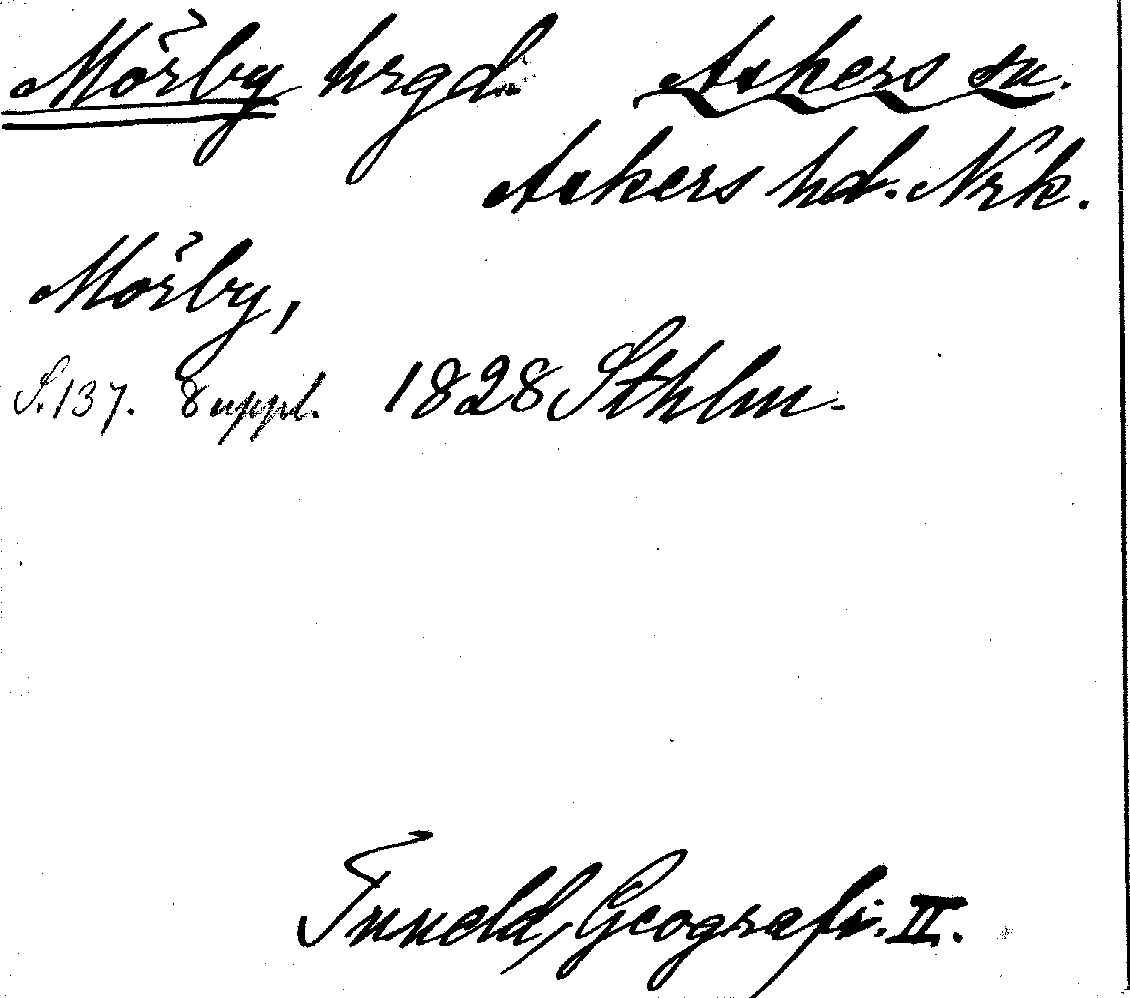 Mörby hrgd. Askers sn.
Askers hd. Nrk.
Mörby,
S. 137. Suppl. 1828 Sthlm.
Tuneld, Geografi. II.